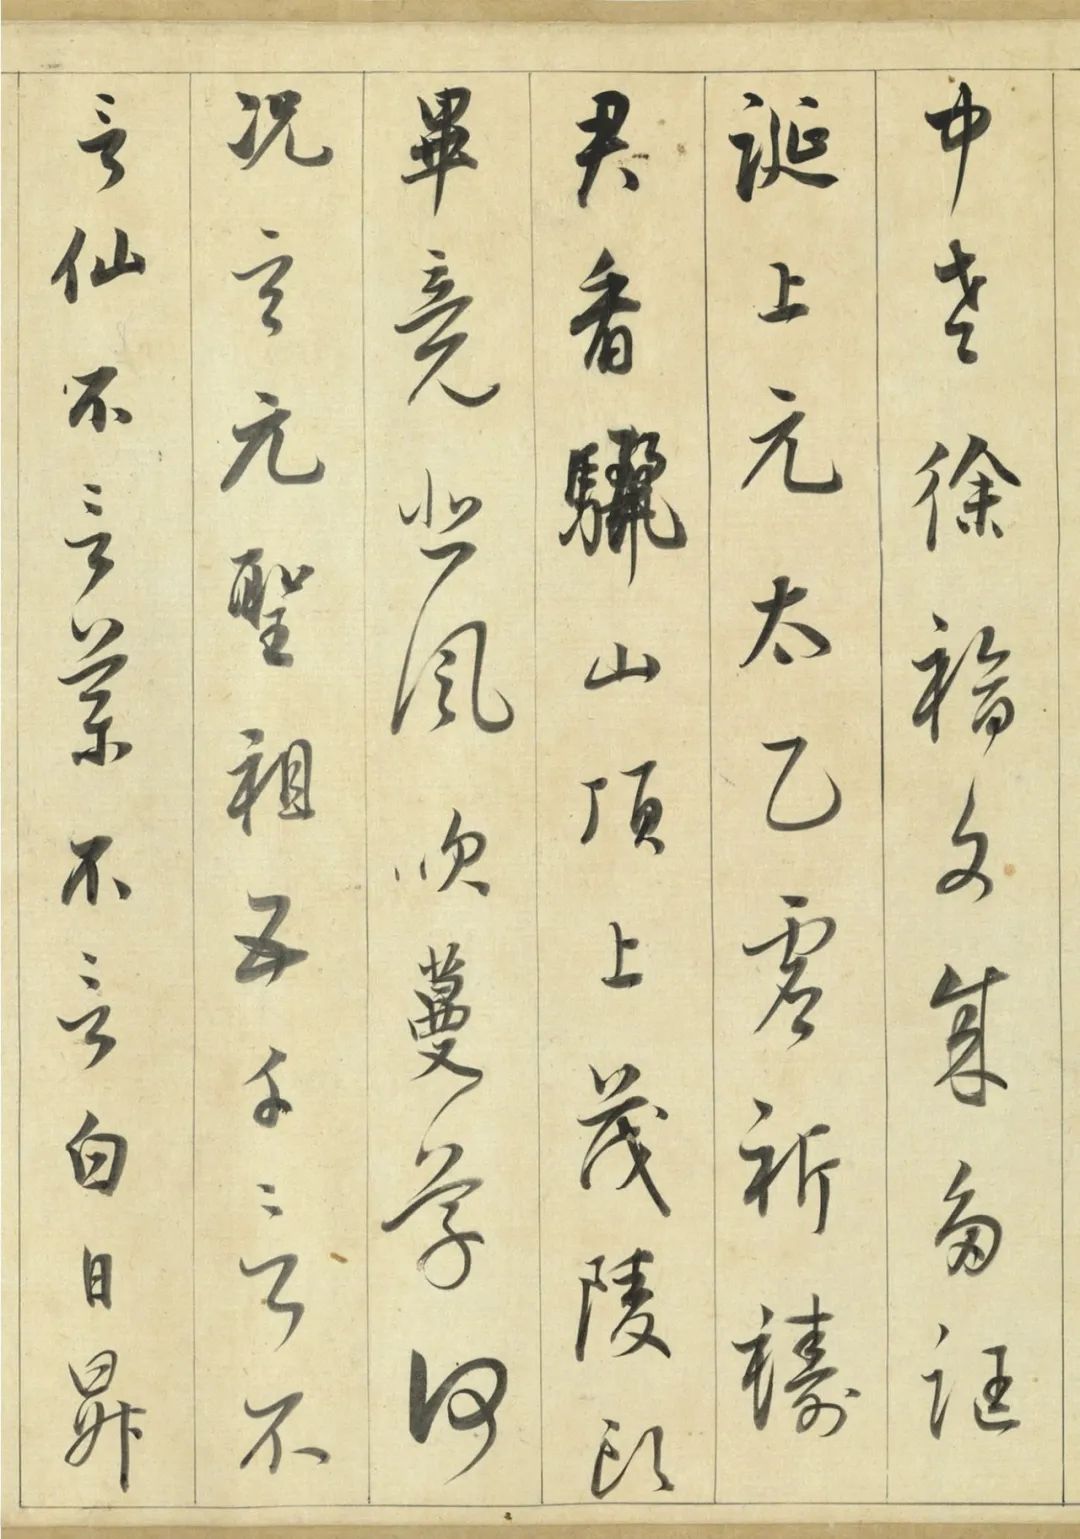 中老徐福文成多誑
誕上元太乙虛祈禱
君看驪山頂上茂陵頭
畢竟悲風吹蔓草何
況玄元聖祖五千言不
言仙不言藥不言白日昇